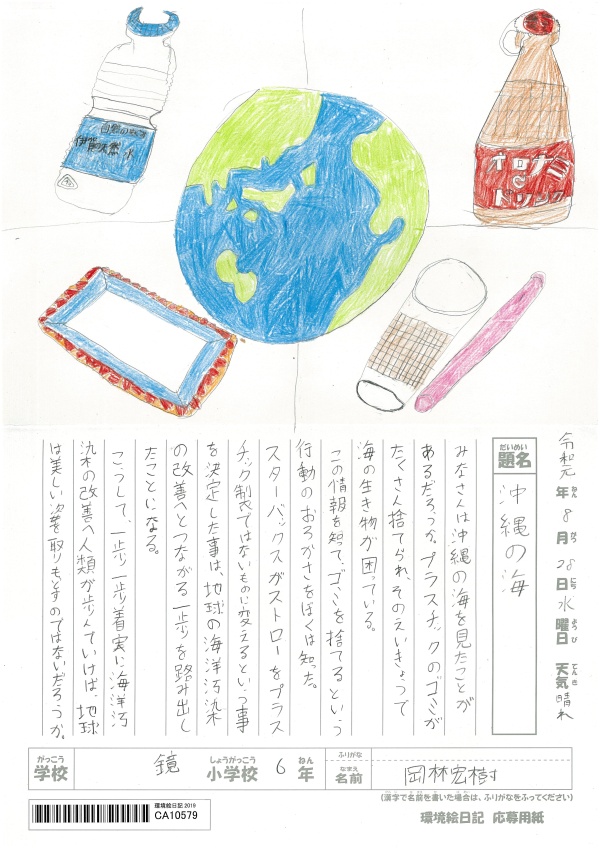 自然の恵み
伊賀の天然水
オロナミン
ドリンク
令和元年 8月 28日 水曜日 天気 晴れ
ねん がつ にち ようび てんき
だいめい
題名 沖縄の海
みなさんは沖縄の海を見たことが
あるだろうか。プラスチックのゴミが
たくさん捨てられ、そのえいきょうで
海の生き物が困っている。
この情報を知って、ゴミを捨てるという
行動のおろかさをぼくは知った。
スターバックスがストローをプラス
チック制衣ではないものに変えるという事
を決定した事は、地球の海洋汚染
の改善へとつながる一歩を踏み出し
たことになる。
こうして、一歩一歩着実に海洋汚
染の改善へ人類が歩んでいけば、地球
は美しい姿を取りもどすのではないだろうか。
がっこう しょうがっこう ねん ふりがな
学校 鏡 小学校 6年
なまえ
名前 岡林宏樹
(漢字で名前を書いた場合は、ふりがなをふってください)
環境絵日記 2019
CA10579
環境絵日記 応募用紙